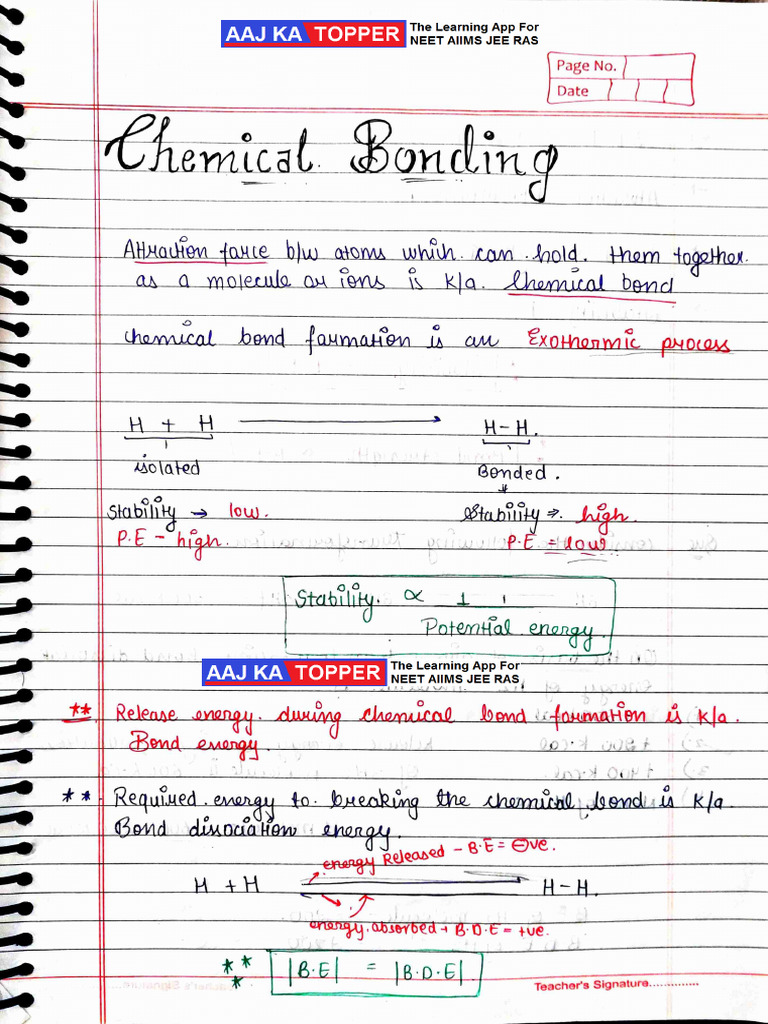 AAJ KA TOPPER The Learning App For
NEET AIIMS JEE RAS
Page No.
Date
Chemical Bonding
Attraction force b/w atoms which can hold. them together.
as a molecule or ions is k/a. Chemical bond
chemical bond formation is an Exothermic process
H + H → H-H.
isolated Bonded.
Stability → low. Stability ⇒ high.
P.E - high. P.E = low.
Stability ∝ 1
Potential energy.
AAJ KA TOPPER The Learning App For
NEET AIIMS JEE RAS
** Release energy during chemical bond formation is k/a.
Bond energy.
** Required energy to breaking the chemical bond is k/a.
Bond dissociation energy.
energy Released - B.E = ⊖ve.
H + H H-H.
energy absorbed + B.D.E = +ve.
*** |B.E| = |B.D.E|
Teacher's Signature..............